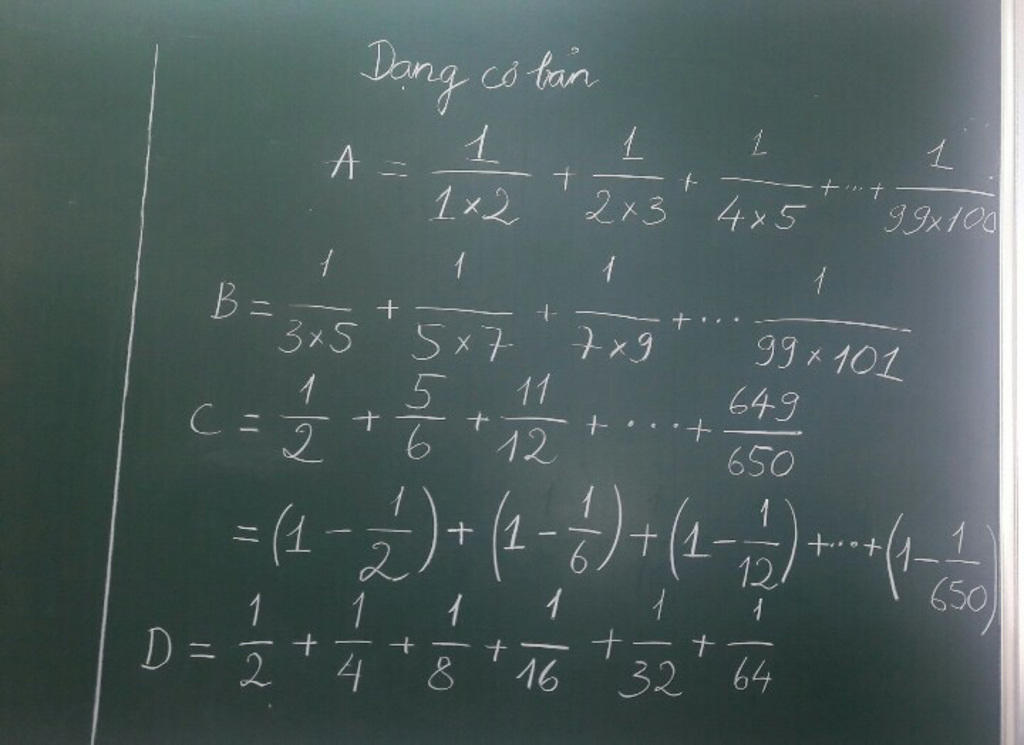 Dạng cơ bản
A = 1/(1×2) + 1/(2×3) + 1/(4×5) + ... + 1/(99×100)
B = 1/(3×5) + 1/(5×7) + 1/(7×9) + ... 1/(99×101)
C = 1/2 + 5/6 + 11/12 + .... + 649/650
= (1 - 1/2) + (1 - 1/6) + (1 - 1/12) + ... + (1 - 1/650)
D = 1/2 + 1/4 + 1/8 + 1/16 + 1/32 + 1/64